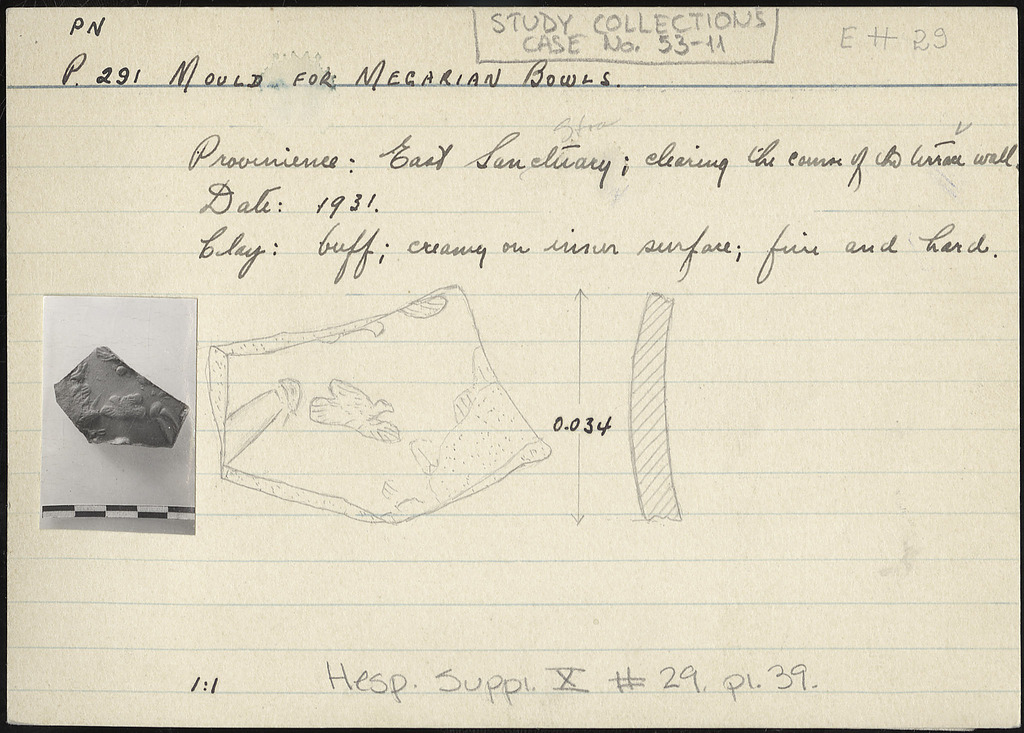 PN
STUDY COLLECTIONS
CASE No. 53-11
E # 29
P. 291 MOULD FOR MEGARIAN BOWLS.
Provinience: East Sanctuary; clearing the course of the terrace wall.
Date: 1931.
Clay: buff; creamy on inner surface; fine and hard.
0.034
1:1
Hesp. Suppl. X # 29. pl. 39.